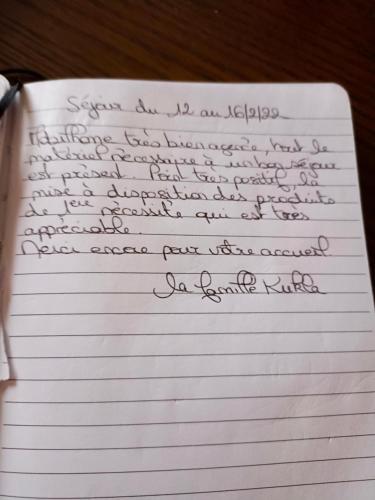 Séjour du 12 au 16/2/22
très bien agencée, tout le
matériel nécessaire à un bon séjour
est présent. Point très positif, la
mise à disposition des produits
de 1ere nécessité qui est très
appréciable.
Merci encore pour votre accueil.
La famille Kukla